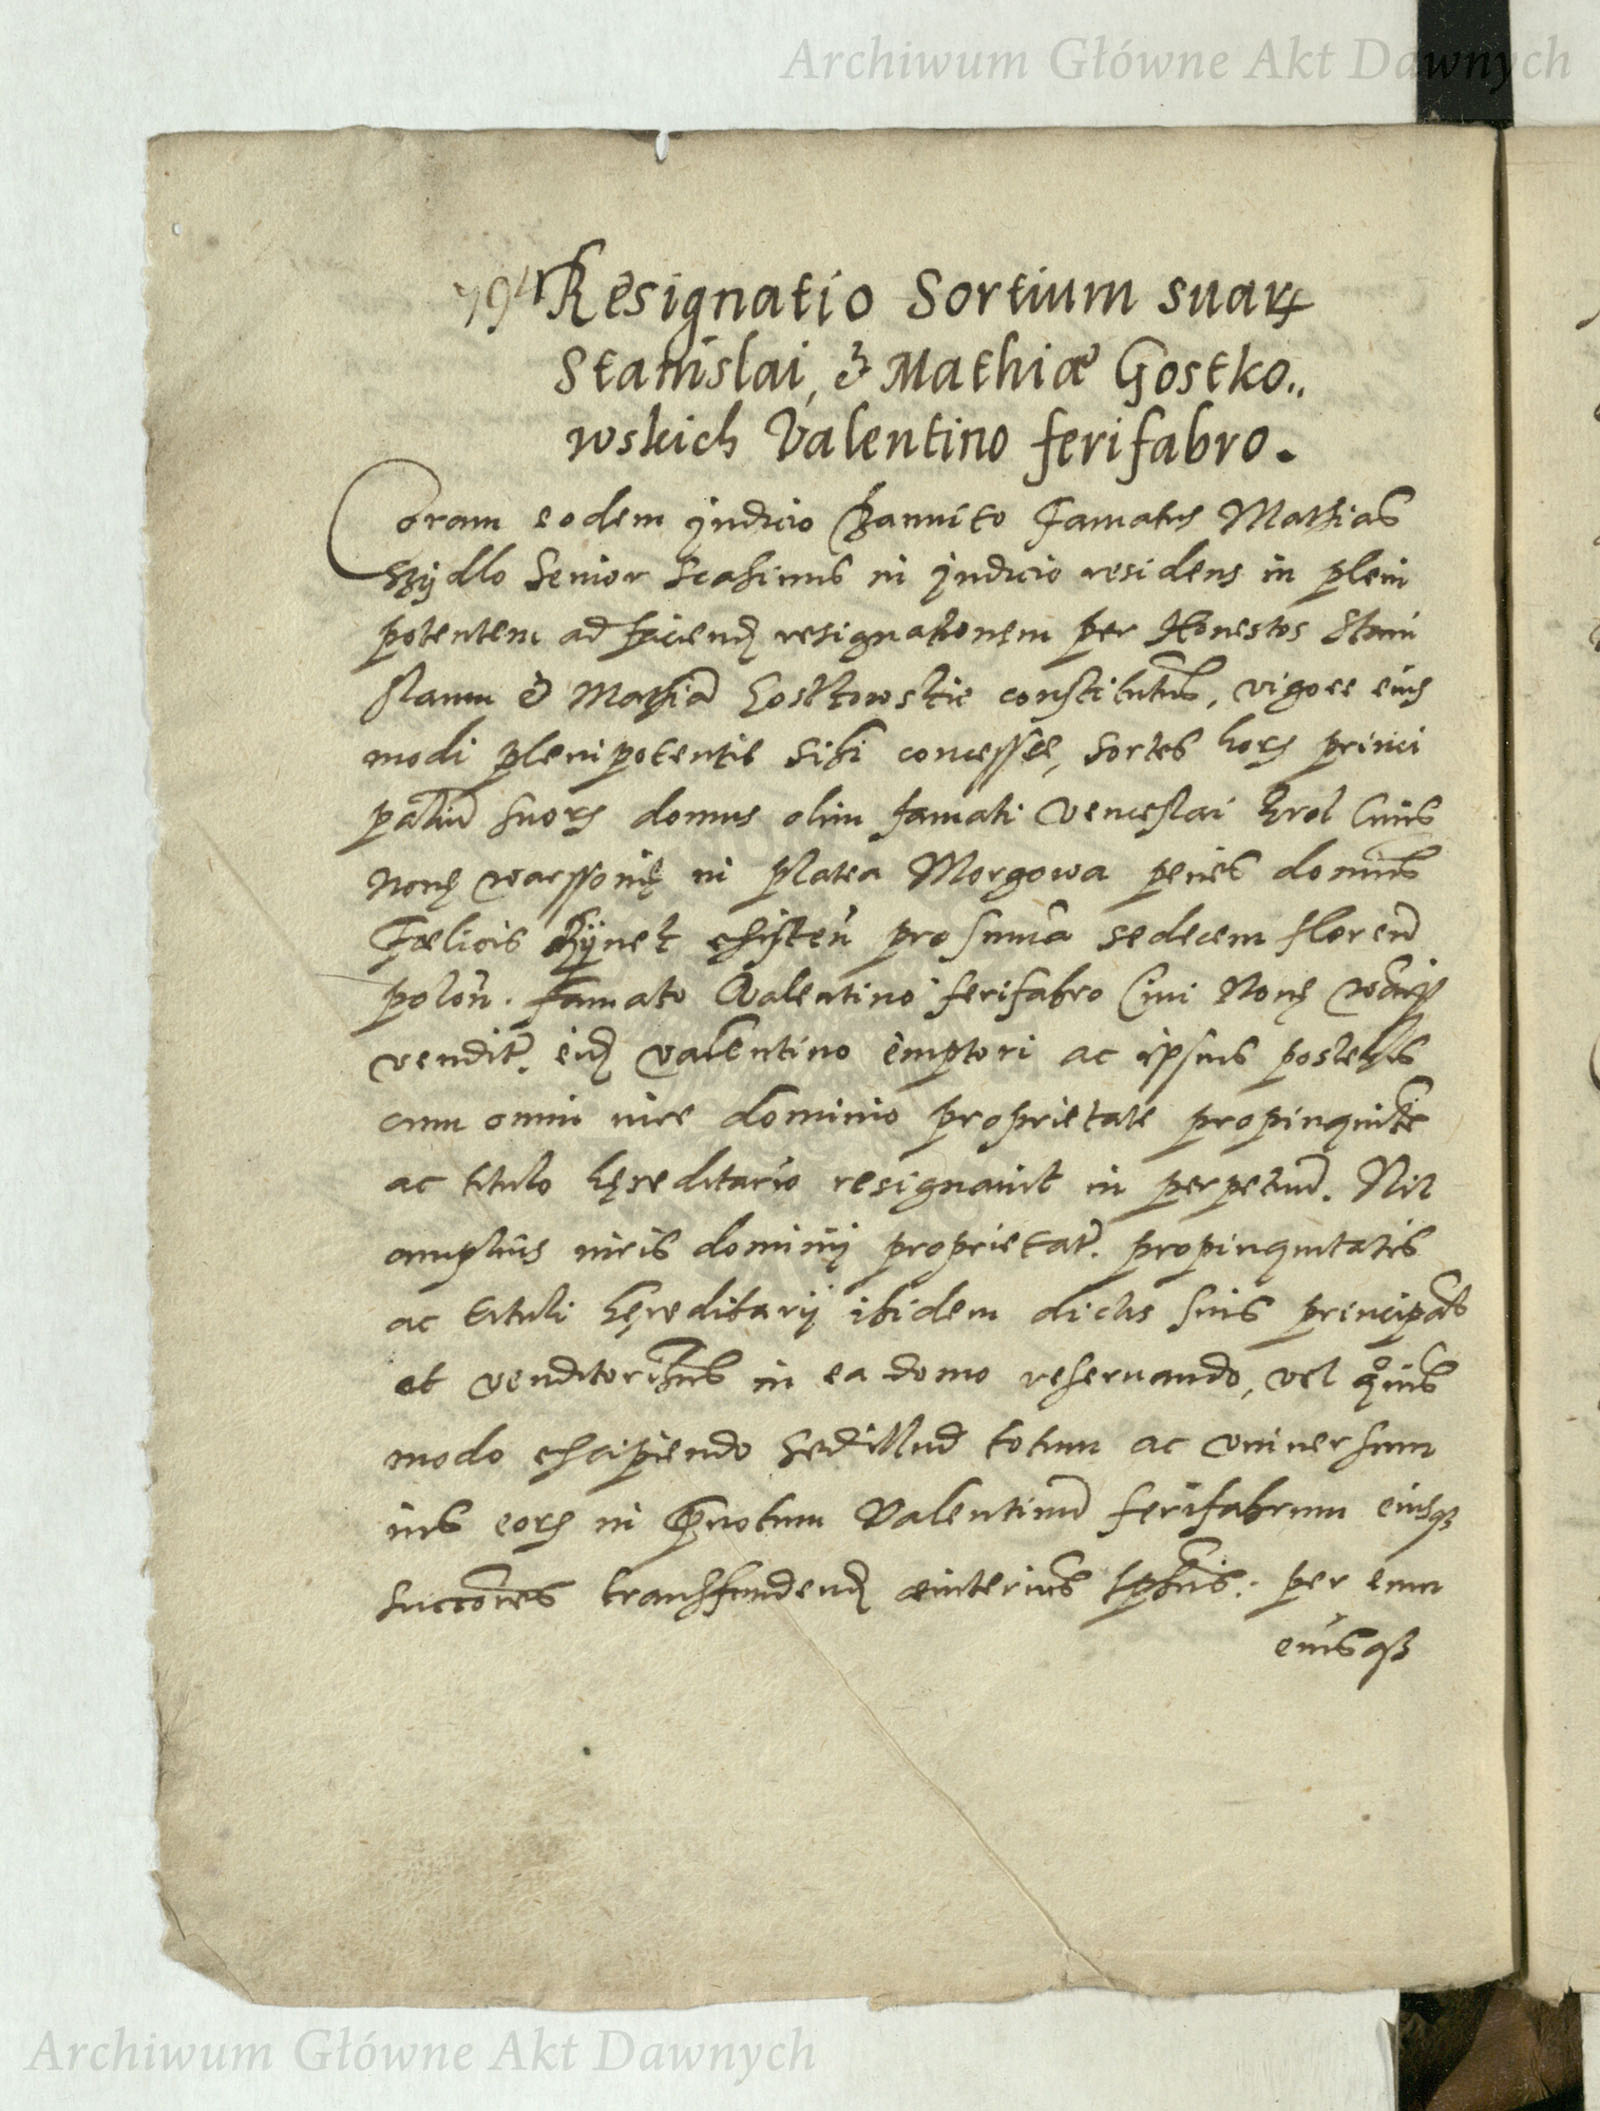 Archiwum Główne Akt Dawnych
794 Resignatio Sortium suarꝝ
Stanislai, & Mathiæ Gostko„
wskich Valentino ferifabro.
Coram eodem Judicio Bannito Famatus Mathias
Szÿdlo Senior Scabinus in Judicio residens in pleni
potentem ad faciend resignationem per Honestos Stani
slaum & Mathiā Gostkowskie constitutus, vigore eius
modi plenipotentie sibi concessæ, sortes horꝝ princi
paliū suorꝝ domus olim famati Venceslai Krol Ciuis
Nouę warssouię in platea Morgowa penes domus
Fælicis existeñ pro summa sedecem floreñ
poloñ. Famato Valentino ferifabro Ciui Nouę
vendit. eid Valentino emptori ac ipsius posteris
cum omni iure dominio proprietate propinquite
ac titulo hęreditario resignauit in perpetuū. Nil
amplius iuris dominij proprietat. propinquitatis
ac tituli hęreditarij ibidem dictis suis principals
et venditoribus in ea domo reseruando, vel quius
modo excipiendo sed illud totum ac vniuersum
ius eorꝝ in Valentinū ferifabrum eiusqꝫ
succōres transfundend per eum
eiusqꝫ
Archiwum Główne Akt Dawnych